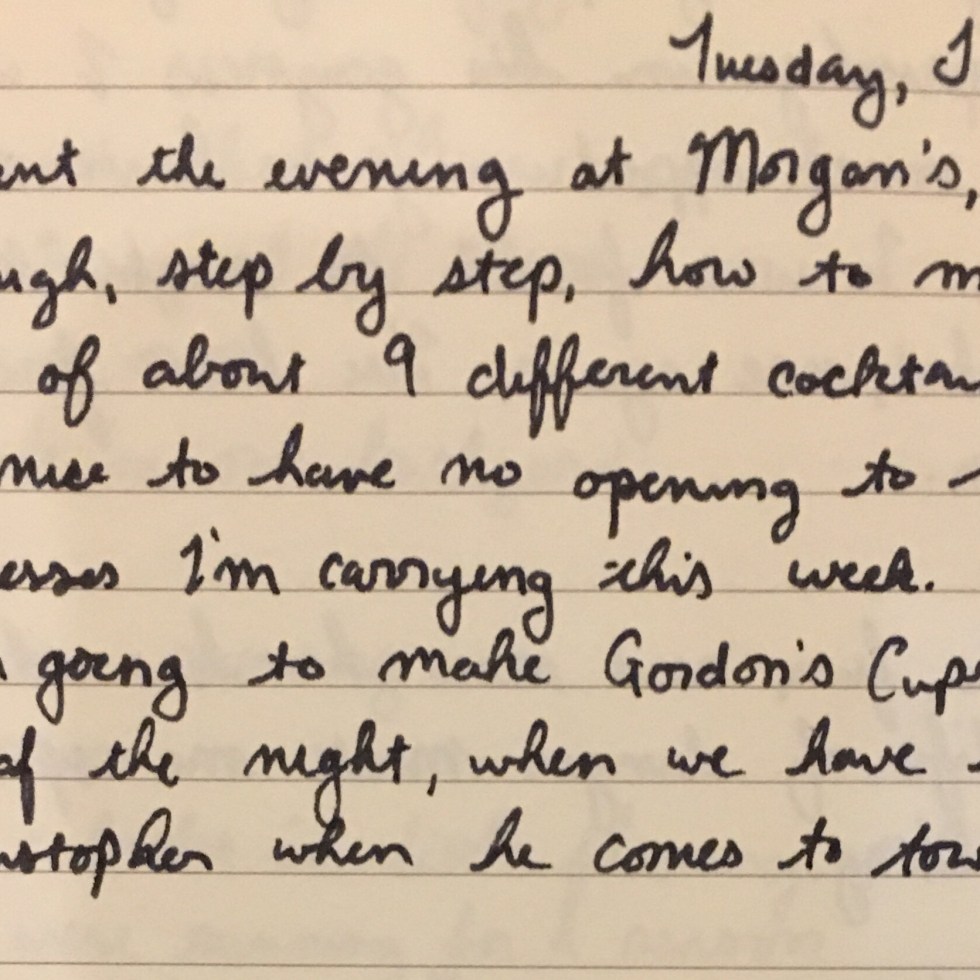 Tuesday, J
ent the evening at Morgan's,
ugh, step by step, how to m
of about 9 different cocktai
nice to have no opening to
esses I'm carrying this week.
going to make Gordon's Cups
of the night, when we have
istopher when he comes to tow